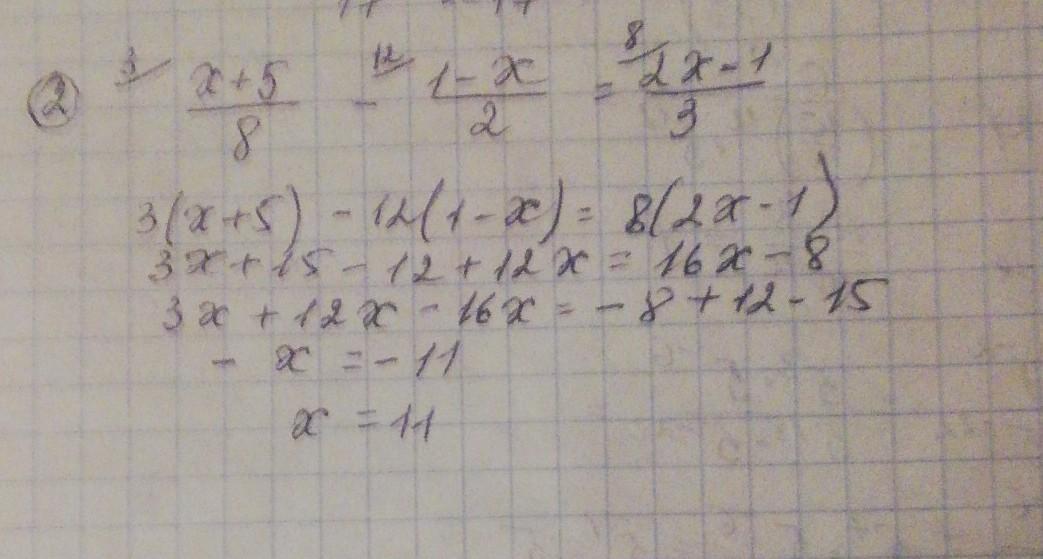 ② 3/ x+5/8 - 12/ 1-x/2 = 8/ 2x-1/3
3(x+5) - 12(1-x) = 8(2x-1)
3x+15-12+12x = 16x-8
3x+12x-16x = -8+12-15
-x = -11
x = 11